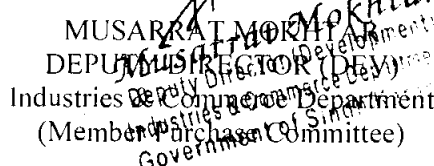 MUSARRAT MOKHTAR
DEPUTY DIRECTOR (DEV)
Industries & Commerce Department
(Member Purchase Committee)
Musarrat Mokhtar
Deputy Director (Development)
Industries & Commerce Department
Government of Sindh